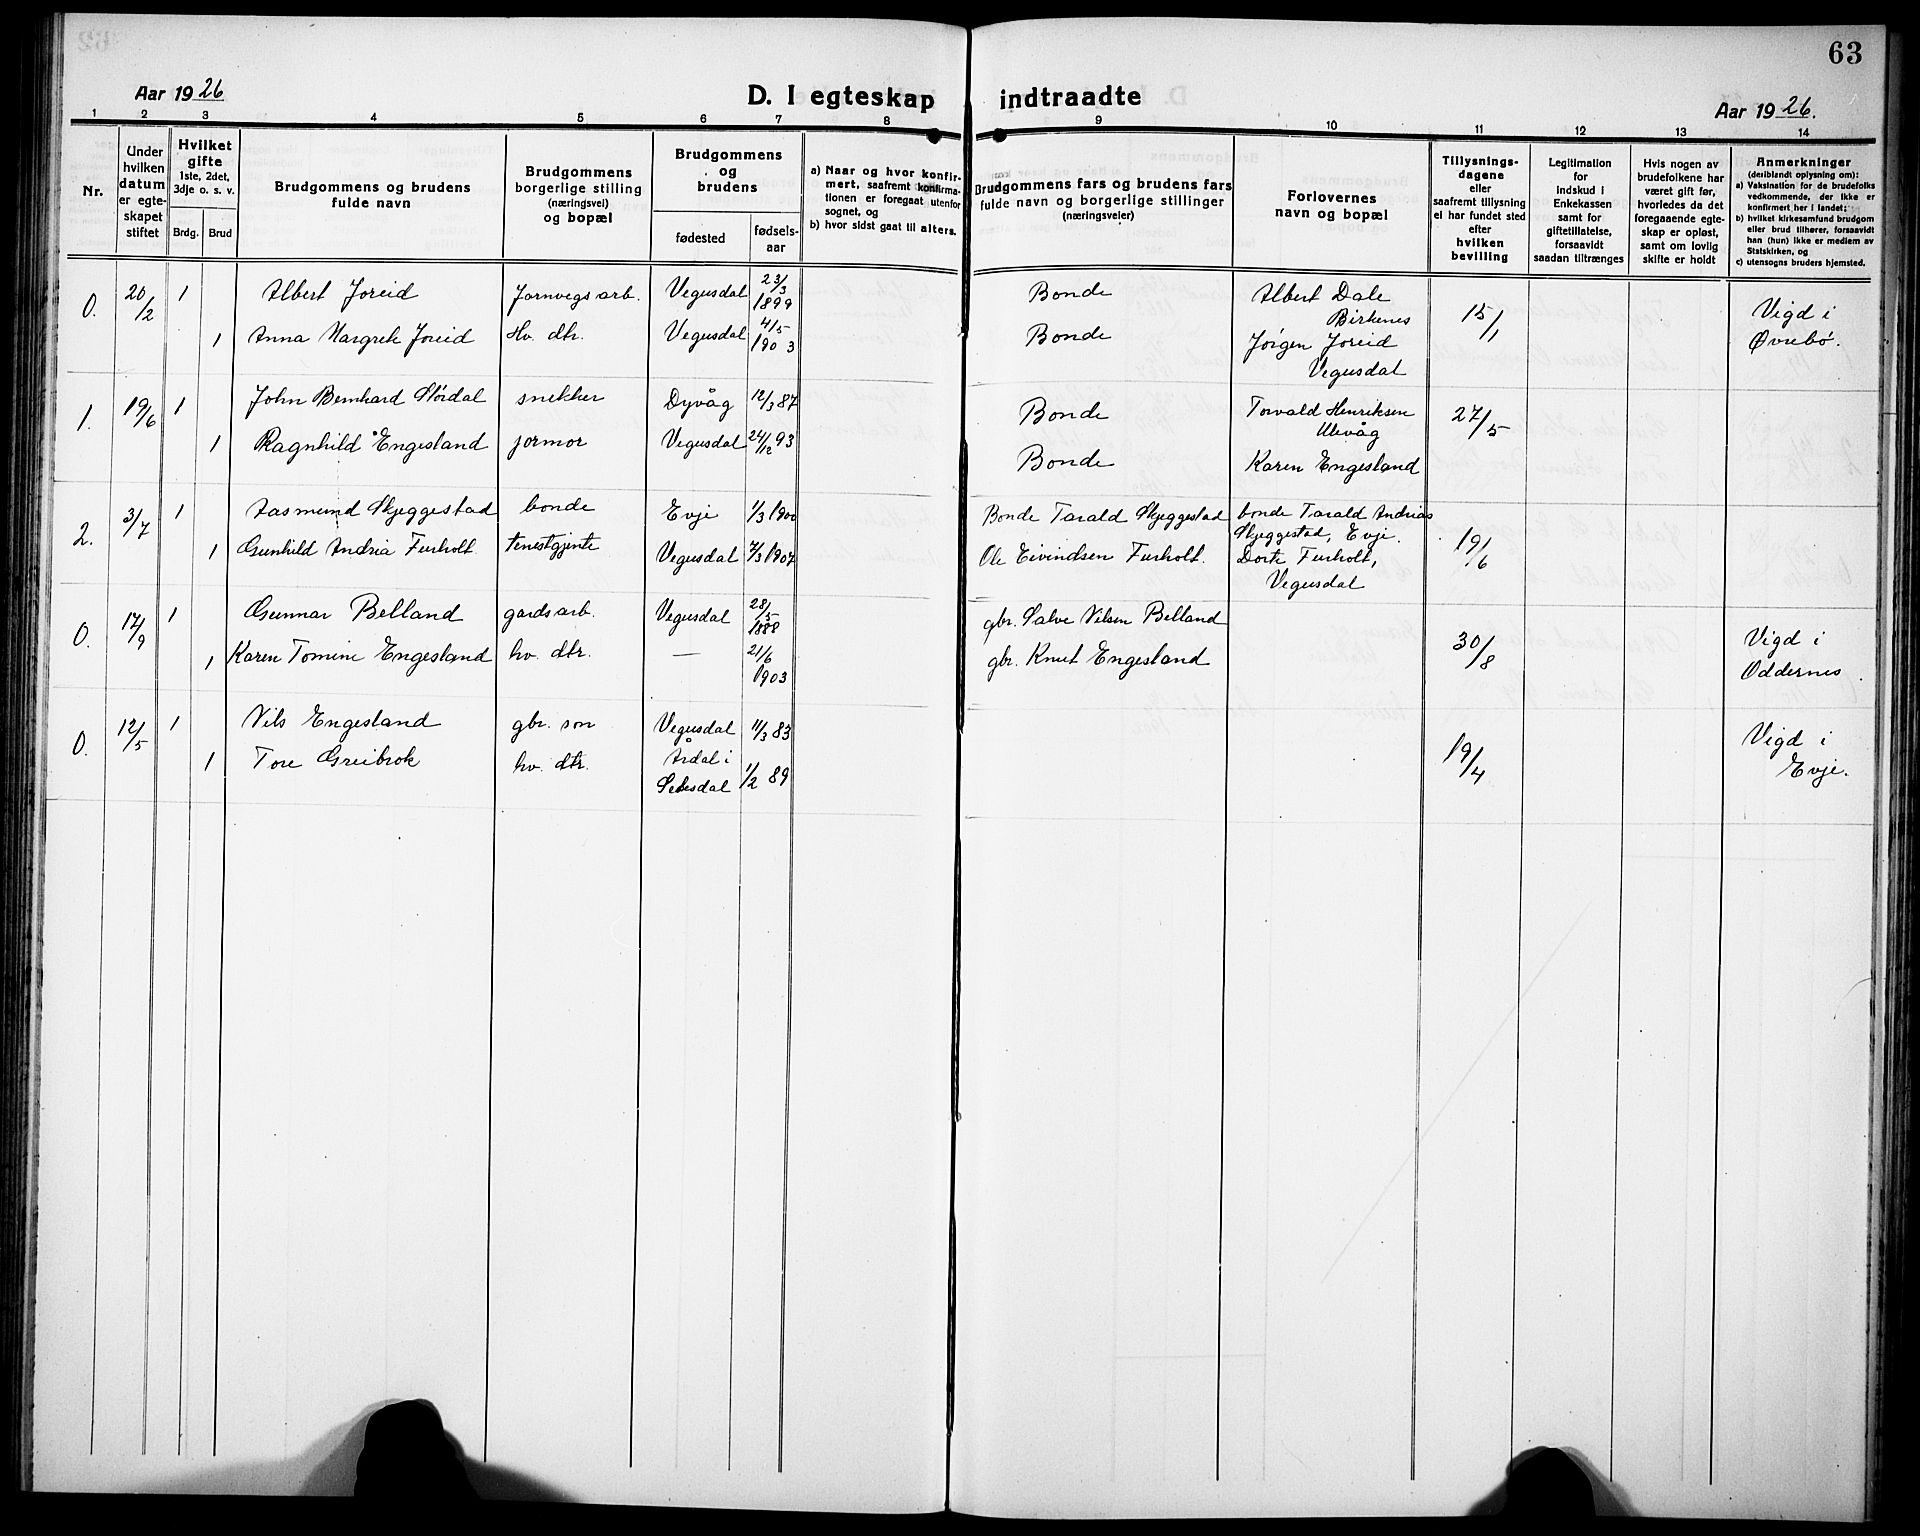 63
Aar 1926
D. I egteskap indtraadte
Aar 1926.
1 2 3 4 5 6 7 8 9 10 11 12 13 14
Nr.
Under
hvilken
datum
er egte-
skapet
stiftet
Hvilket
gifte
1ste, 2det,
3dje o. s. v.
Brdg. Brud
Brudgommens og brudens
fulde navn
Brudgommens
borgerlige stilling
(næringsvei)
og bopæl
Brudgommens
og
brudens
fødested
fødsels-
aar
a) Naar og hvor konfir-
mert, saafremt konfirma-
tionen er foregaat utenfor
sognet, og
b) hvor sidst gaat til alters.
Brudgommens fars og brudens fars
fulde navn og borgerlige stillinger
(næringsveier)
Forlovernes
navn og bopæl
Tillysnings-
dagene
eller
saafremt tillysning
ei har fundet sted
efter
hvilken
bevilling
Legitimation
for
indskud i
Enkekassen
samt for
giftetillatelse,
forsaavidt
saadan tiltrænges
Hvis nogen av
brudefolkene har
været gift før,
hvorledes da det
foregaaende egte-
skap er opløst,
samt om lovlig
skifte er holdt
Anmerkninger
(deriblandt oplysning om):
a) Vaksination for de brudefolks
vedkommende, der ikke er
konfirmert her i landet;
b) hvilket kirkesamfund brudgom
eller brud tilhører, forsaavidt
han (hun) ikke er medlem av
Statskirken, og
c) utensogns bruders hjemsted.
0. 20/2 1 Albert Joreid Jarnvegsarb. Vegusdal 23/3 1899 Bonde Albert Dale
Birkenes
1 Anna Margrek Joreid Hv. dtr. Vegusdal 4/5 1903 Bonde Jørgen Joreid
Vegusdal
15/1 Vigd i
Øvrebø.
1. 19/6 1 John Bernhard Stördal snekker Dyvåg 12/3 87 Bonde Torvald Henriksen
Ulevåg
27/5
1 Ragnhild Engesland jormor Vegusdal 24/12 93 Bonde Karen Engesland
2. 3/7 1 Aasmund Skjeggestad bonde Evje 1/3 1900 Bonde Tarald Skjeggestad bonde Tarald Andrias
Skjeggestad, Evje.
1 Gunhild Andria Furholt tenestgjente Vegusdal 7/3 1907 Ole Eivindsen Furholt. Dorte Furholt,
Vegusdal
19/6
0. 17/9 1 Gunnar Belland gardsarb. Vegusdal 28/5 1888 gbr. Salve Nilsen Belland
1 Karen Tomine Engesland hv. dtr. — 21/6 1903 gbr. Knut Engesland
30/8 Vigd i
Oddernes.
0. 12/5 1 Nils Engesland gbr. son Vegusdal 11/3 83
1 Tore Greibrok hv. dtr. Årdal i
Setesdal 1/2 89
19/4 Vigd i
Evje.